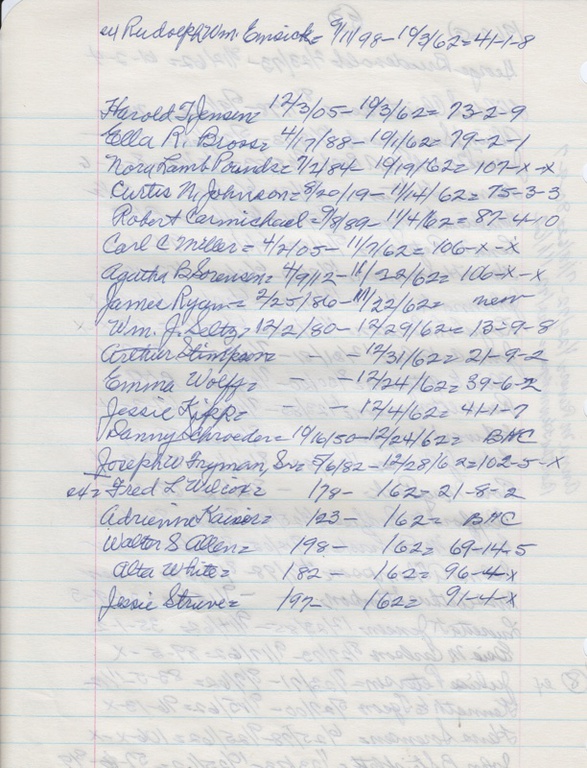 ex Rudolph Wm. Emsick = 9/11/98 - 10/3/62 = 41-1-8
Harold T. Jensen = 12/3/05 - 10/3/62 = 73-2-9
Ella R. Bross = 4/17/88 - 10/1/62 = 79-2-1
Nora Lamb Pounds = 7/2/84 - 10/19/62 = 107-x-x
Curtis N. Johnson = 8/20/19 - 11/14/62 = 75-3-3
Robert Carmichael = 9/8/89 - 11/4/62 = 87-4-10
Carl C Miller = 4/2/05 - 11/7/62 = 106-x-x
Agatha B Sorensen = 4/9/12 - 11/22/62 = 106-x-x
James Ryan = 2/25/86 - 11/22/62 = new
x Wm. J. Seltz = 12/2/80 - 12/29/62 = 13-9-8
Arthur Stimpson = - - 12/31/62 = 21-9-2
Emma Wolff = - - 12/24/62 = 39-6-2
Jessie Kipp = - - 12/4/62 = 41-1-7
Danny Schroeder = 10/16/50 - 12/24/62 = BHC
Joseph W Fryman, Sr = 5/6/82 - 12/28/62 = 102-5-x
ex = Fred L Wilcox = 178 - 162 = 21-8-2
Adrienne Kaiser = 123 - 162 = BHC
Walter S Allen = 198 - 162 = 69-14-5
Alta White = 182 - 162 = 96-4-x
Jessie Struve = 197 - 162 = 91-4-x